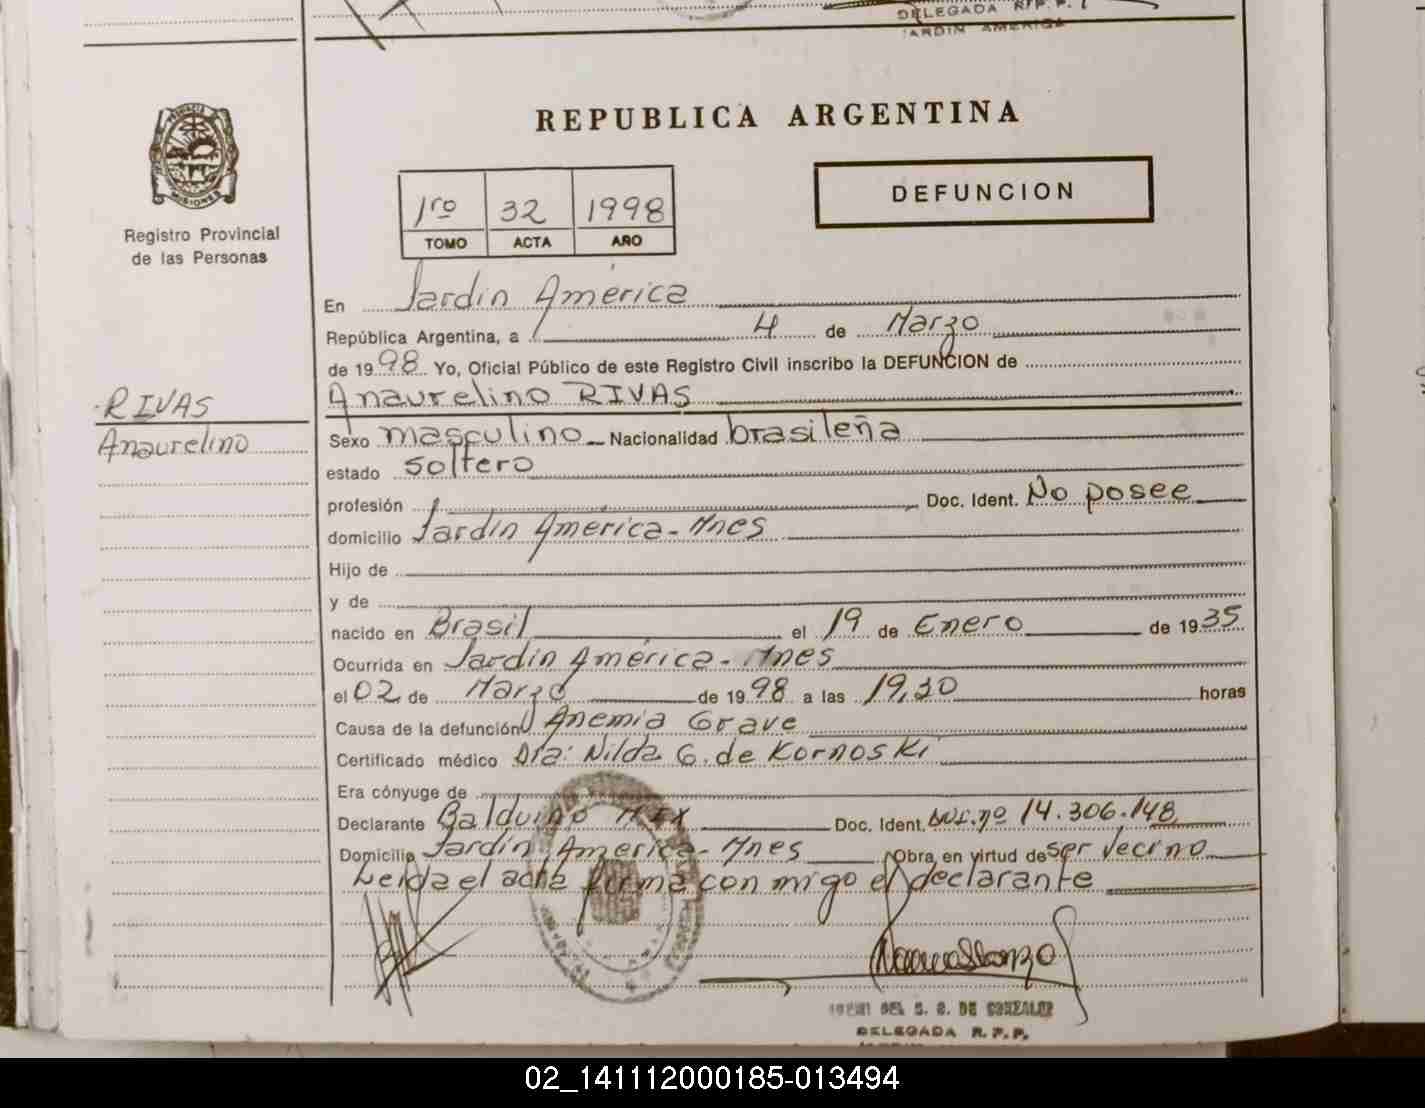 DELEGADA R.P.P.
JARDIN AMERICA
REPUBLICA ARGENTINA
PROVINCIA
MISIONES
Registro Provincial
de las Personas
1ro 32 1998
TOMO ACTA AÑO
DEFUNCION
En Jardin América
República Argentina, a 4 de Marzo
de 1998 Yo, Oficial Público de este Registro Civil inscribo la DEFUNCION de
Anaurelino RIVAS
RIVAS
Anaurelino
Sexo masculino Nacionalidad brasileña
estado soltero
profesión Doc. Ident. No posee
domicilio Jardin América-Mnes
Hijo de
y de
nacido en Brasil el 19 de Enero de 1935
Ocurrida en Jardin América-Mnes
el 02 de Marzo de 1998 a las 19,30 horas
Causa de la defunción Anemia Grave
Certificado médico Dra: Nilda G. de Kornoski
Era cónyuge de
Declarante Balduino Doc. Ident. nº 14.306.148
Domicilio Jardin América-Mnes Obra en virtud de ser vecino
Leida el acta firma conmigo el declarante
DEL S. G. DE GONZALEZ
DELEGADA R.P.P.
02_141112000185-013494